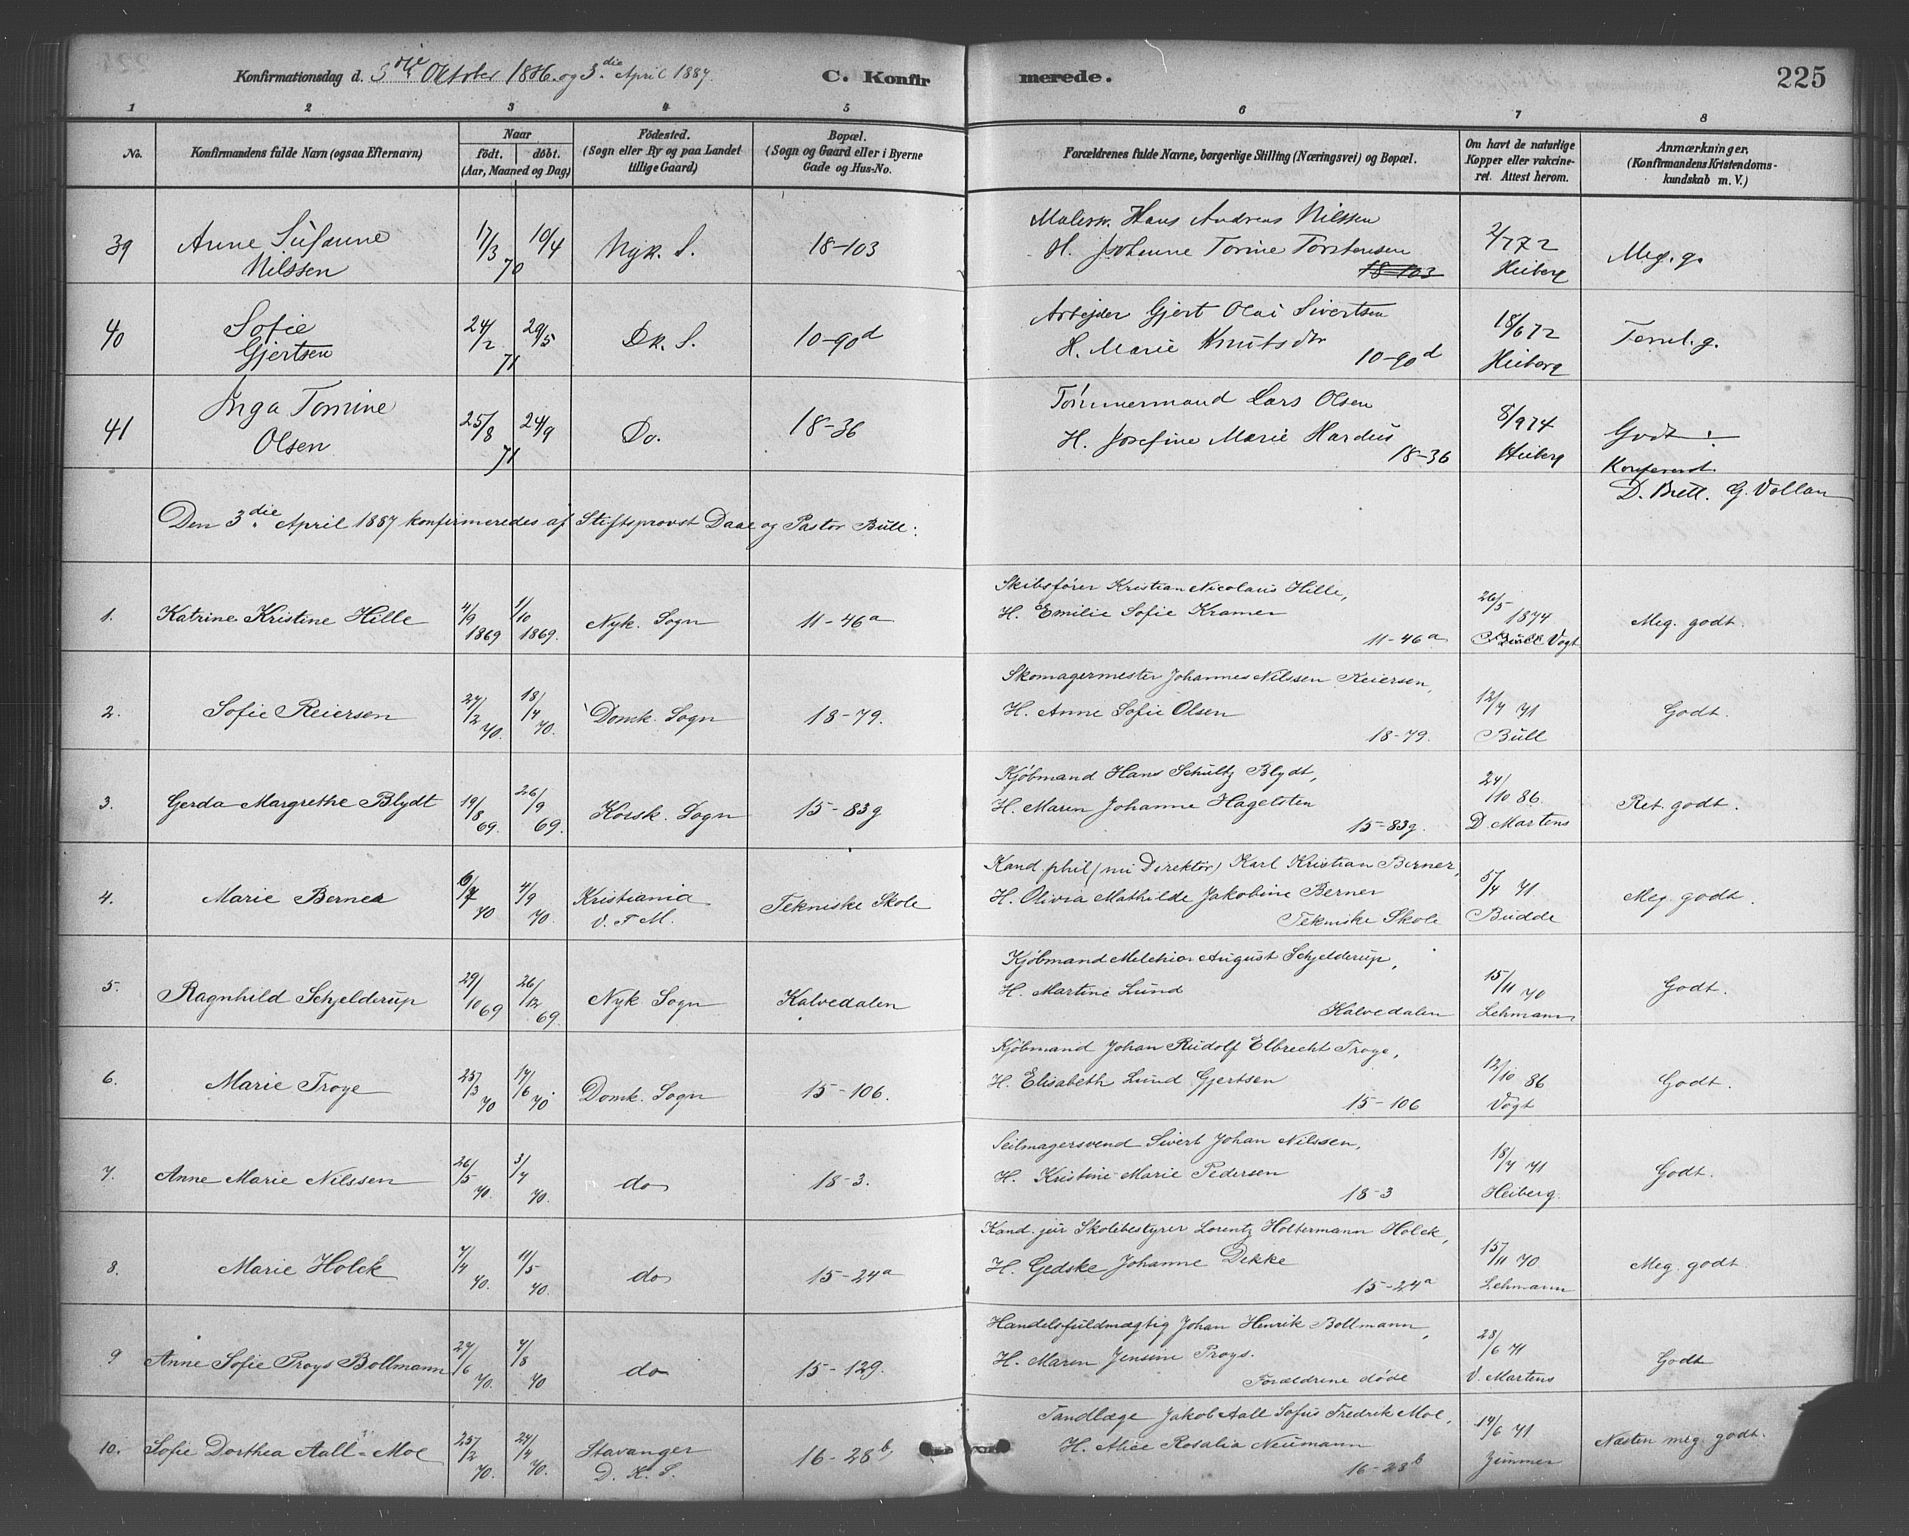 Konfirmationsdag d. 3die Oktober 1886. og 3.die April 1887. C. Konfirmerede. 225
1 2 3 4 5 6 7 8
No. Konfirmandens fulde Navn (ogsaa Efternavn) Naar født. døbt. (Aar, Maaned og Dag) Födested. (Sogn eller By og paa Landet tillige Gaard) Bopæl. (Sogn og Gaard eller i Byerne Gade og Hus-No. Forældrenes fulde Navne, borgerlige Stilling (Næringsvei) og Bopæl. Om havt de naturlige Kopper eller vaccineret. Attest herom. Anmærkninger, (Konfirmandens Kristendomskundskab m. V.)
39 Anne Susanne Nilssen 17/3 10/4 70 Nyk. S. 18-103 Malersv. Hans Andreas Nilssen
H. Johanne Torine Torstensen 18-103 2/7 72 Heiberg Meg. g.
40 Sofie Gjertsen 24/2 29/5 71 Dk. S. 10-90d Arbejder Gjert Olai Sivertsen
H. Marie Knutsdtr 10-90d 18/6 72 Heiberg Teml. g.
41 Inga Tomine Olsen 25/8 24/9 71 Do. 18-36 Tømmermand Lars Olsen
H. Josefine Marie Hardus 18-36 8/9 74 Heiberg Godt.
Konfereret.
D. Brett. G. Vollan
Den 3die April 1887 konfirmeredes af Stiftsprovst Daae og Pastor Bull:
1. Katrine Kristine Hille 4/9 1869 1/10 1869. Nyk. Sogn 11-46a Skibsfører Kristian Nicolaus Hille,
H. Emilie Sofie Kramer 11-46a 26/5 1874 Vogt Meg. godt.
2. Sofie Reiersen 27/2 70. 18/4 70. Domk. Sogn 18-79. Skomagermester Johannes Nilssen Reiersen,
H. Anne Sofie Olsen 18-79. 12/7 71 Bull Godt.
3. Gerda Margrethe Blydt 19/8 69. 26/9 69. Korsk. Sogn 15-83g Kjøbmand Hans Schultz Blydt,
H. Maren Johanne Hagelsten 15-83g. 24/10 86. D. Martens Ret godt.
4. Marie Berner 6/7 70 4/9 70 Kristiania V. F. M. Tekniske Skole Kand. phil (nu Direktør) Karl Kristian Berner,
H. Olivia Mathilde Jakobine Berner Tekniske Skole 5/7 71 Budde Meg. godt.
5. Ragnhild Schjelderup 29/10 69 26/12 69. Nyk Sogn Kalvedalen Kjøbmand Melchior August Schjelderup,
H. Martine Lund Kalvedalen 15/11 70 Lehmann Godt.
6. Marie Troye 25/3 70 14/6 70. Domk. Sogn 15-106. Kjøbmand Johan Rudolf Elbrecht Troye,
H. Elisabeth Lund Gjertsen 15-106 12/10 86 Vogt Godt.
7. Anne Marie Nilssen 26/5 70. 3/7 70. do 18-3. Seilmagersvend Sivert Johan Nilssen,
H. Kristine Marie Pedersen 18-3 18/7 71 Heiberg. Godt.
8. Marie Holck 7/4 70. 11/5 70. do 15-24a Kand. jur Skolebestyrer Lorentz Holtermann Holck,
H. Gedske Johanne Dekke 15-24a 15/11 70. Lehmann Meg. godt.
9 Anne Sofie Proys Bollmann 27/6 70. 7/8 70 do 15-129. Handelsfuldmægtig Johan Henrik Bollmann,
H. Maren Jensine Proys. Forældrene døde 28/6 71 V. Martens Godt
10. Sofie Dorthea Aall-Moe 25/2 70. 24/4 70. Stavanger D. K. S. 16-28b, Tandlæge Jakob Aall Sofus Fredrik Moe,
H. Alice Rosalia Neumann 16-28b 14/6 71 Zimmer Næsten meg. godt.